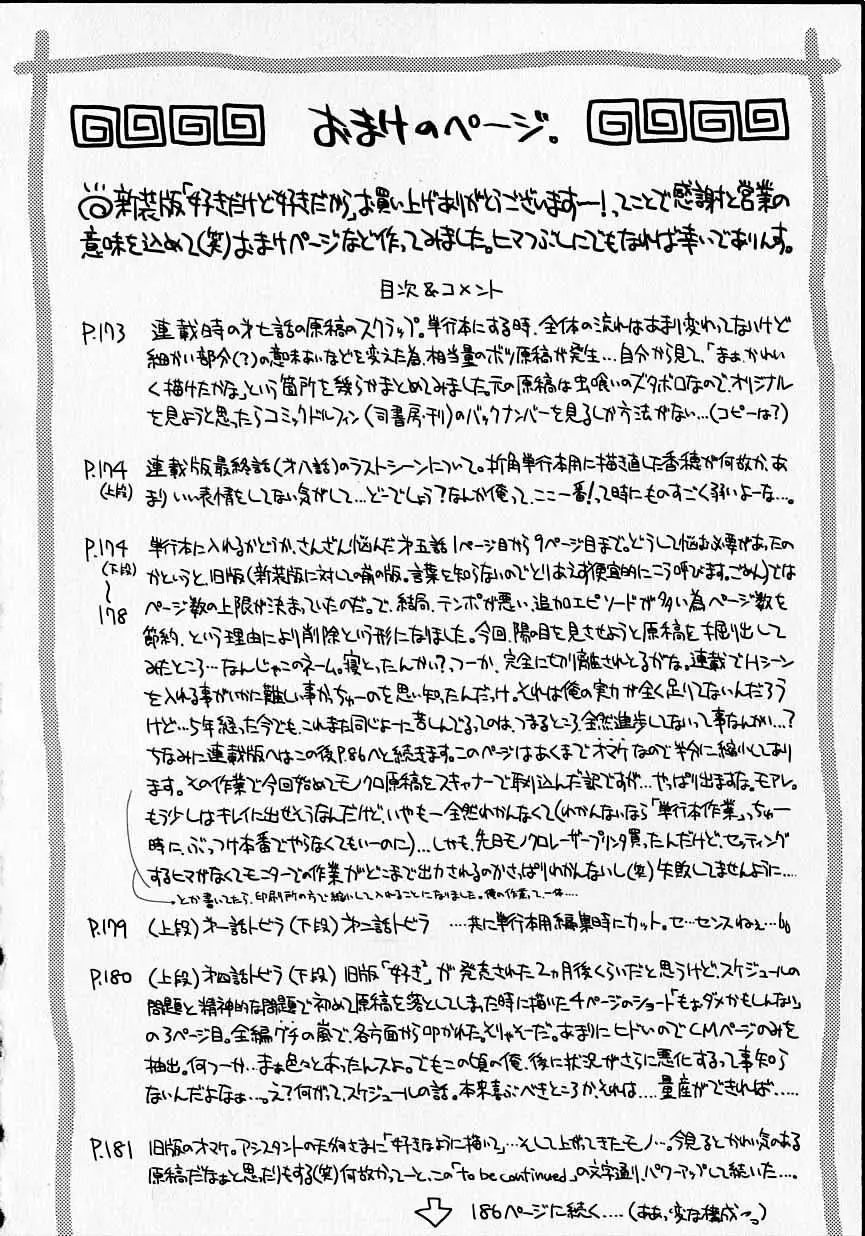 おまけのページ。
新装版「好きだけど好きだから」お買い上げありがとうございますー!ってことで感謝と営業の
意味を込めて(笑)おまけページなど作ってみました。ヒマつぶしにでもなれば幸いでありんす。
目次&コメント
P.173 連載時の才七話の原稿のスクラップ。単行本にする時、全体の流れはあまり変わってないけど
細かい部分(?)の意味あいなどを変えた為、相当量のボツ原稿が発生…自分から見て、「まぁ、かわい
く描けたかな」という箇所を幾らかまとめてみました。元の原稿は虫喰いのズタボロなので、オリジナル
を見ようと思ったらコミックドルフィン(司書房・刊)のバックナンバーを見るしか方法がない…(コピーは?)
P.174 連載版最終話(才八話)のラストシーンについて。折角単行本用に描き直した香穂が何故か、あ
(上段) まりいい表情をしてない気がして…どーでしょう?なんか俺って、ここ一番!って時にものすごく弱いよーな…。
P.174 単行本に入れるかどうか、さんざん悩んだ才五話1ページ目から9ページ目まで。どうして悩む必要があったの
(下段) かというと、旧版(新装版に対しての前の版。言葉を知らないのでとりあえず便宜的にこう呼びます。ごめん)では
〜 ページ数の上限が決まっていたのだ。で、結局、テンポが悪い、追加エピソードが多い為ページ数を
178 節約、という理由により削除という形になりました。今回、陽の目を見させようと原稿を掘り出して
みたところ…なんじゃこのネーム。寝とったんかい?つーか、完全に切り離されとるがな。連載でHシーン
を入れる事がいかに難しい事か、っちゅーのを思い知ったんだっけ。それは俺の実力が全く足りてないんだろう
けど…5年経った今でも、これまた同じよーに苦しんでる、ってのは、つまるところ、全然進歩してないって事なんかい…?
ちなみに連載版へはこの後P.86へと続きます。このページはあくまでオマケなので半分に縮小してあり
ます。その作業で今回始めてモノクロ原稿をスキャナーで取り込んだ訳ですが…やっぱり出ますな。モアレ。
もう少しはキレイに出せそうなんだけど、いやもー全然わかんなくて(わかんないなら「単行本作業」っちゅー
時に、ぶっつけ本番でやらなくてもいーのに)…しかも、先日モノクロレーザープリンタ買ったんだけど、セッティング
するヒマがなくてモニターでの作業がどこまで出力されるのかさっぱりわかんないし(笑)失敗してませんように….
→とか書いてたら、印刷所の方で縮小して入れることになりました。俺の作業って、一体….
P.179 (上段)才一話トビラ(下段)才二話トビラ …共に単行本用編集時にカット。セ…センスねぇ…
P.180 (上段)才四話トビラ(下段)旧版「好き²」が発売された2ヵ月後くらいだと思うけど、スケジュールの
問題と精神的な問題で初めて原稿を落としてしまった時に描いた4ページのショート「もぉダメかもしんない」
の3ページ目。全編グチの嵐で、各方面から叩かれた。とりゃそーだ。あまりにヒドいのでCMページのみを
抽出。何つーか…まぁ色々とあったんスよ。でもこの頃の俺、後に状況がさらに悪化するって事知ら
ないんだよなぁ…。っえ?何がって、スケジュールの話。本来喜ぶべきところか、それは….量産ができれば…..
P.181 旧版のオマケ。アシスタントの天がさまに「好きなように描いて」…そして上がってきたモノ…。今見るとかわい気のある
原稿だなぁと思ったりもする(笑)何故かってーと、この「to be continued」の文字通り、パワーアップして続いた….
186ページに続く….(ああっ、変な構成〜っ)